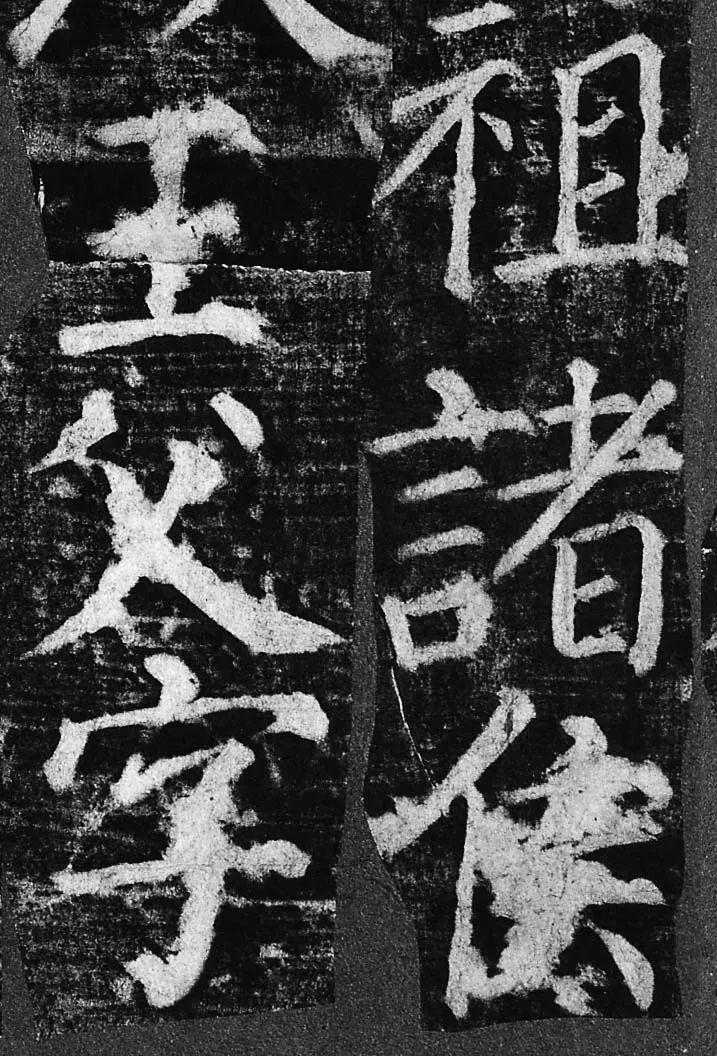 祖諸侯
王父字